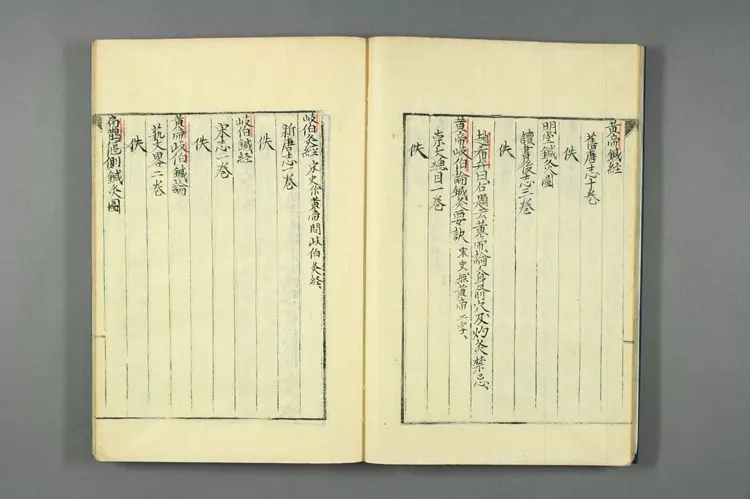 黃帝鍼經
舊唐志十卷
佚
明堂鍼灸圖
讀書後志三卷
佚
趙希弁曰右題云黃帝論人身俞穴及灼灸禁忌
黃帝岐伯論鍼灸要訣 宋史無黃帝二字
崇文總目一卷
佚
岐伯灸經 宋史作黃帝問岐伯灸經
新唐志一卷
佚
岐伯鍼經
宋志一卷
佚
黃帝岐伯鍼論
藝文畧二卷
佚
扁鵲偃側鍼灸圖